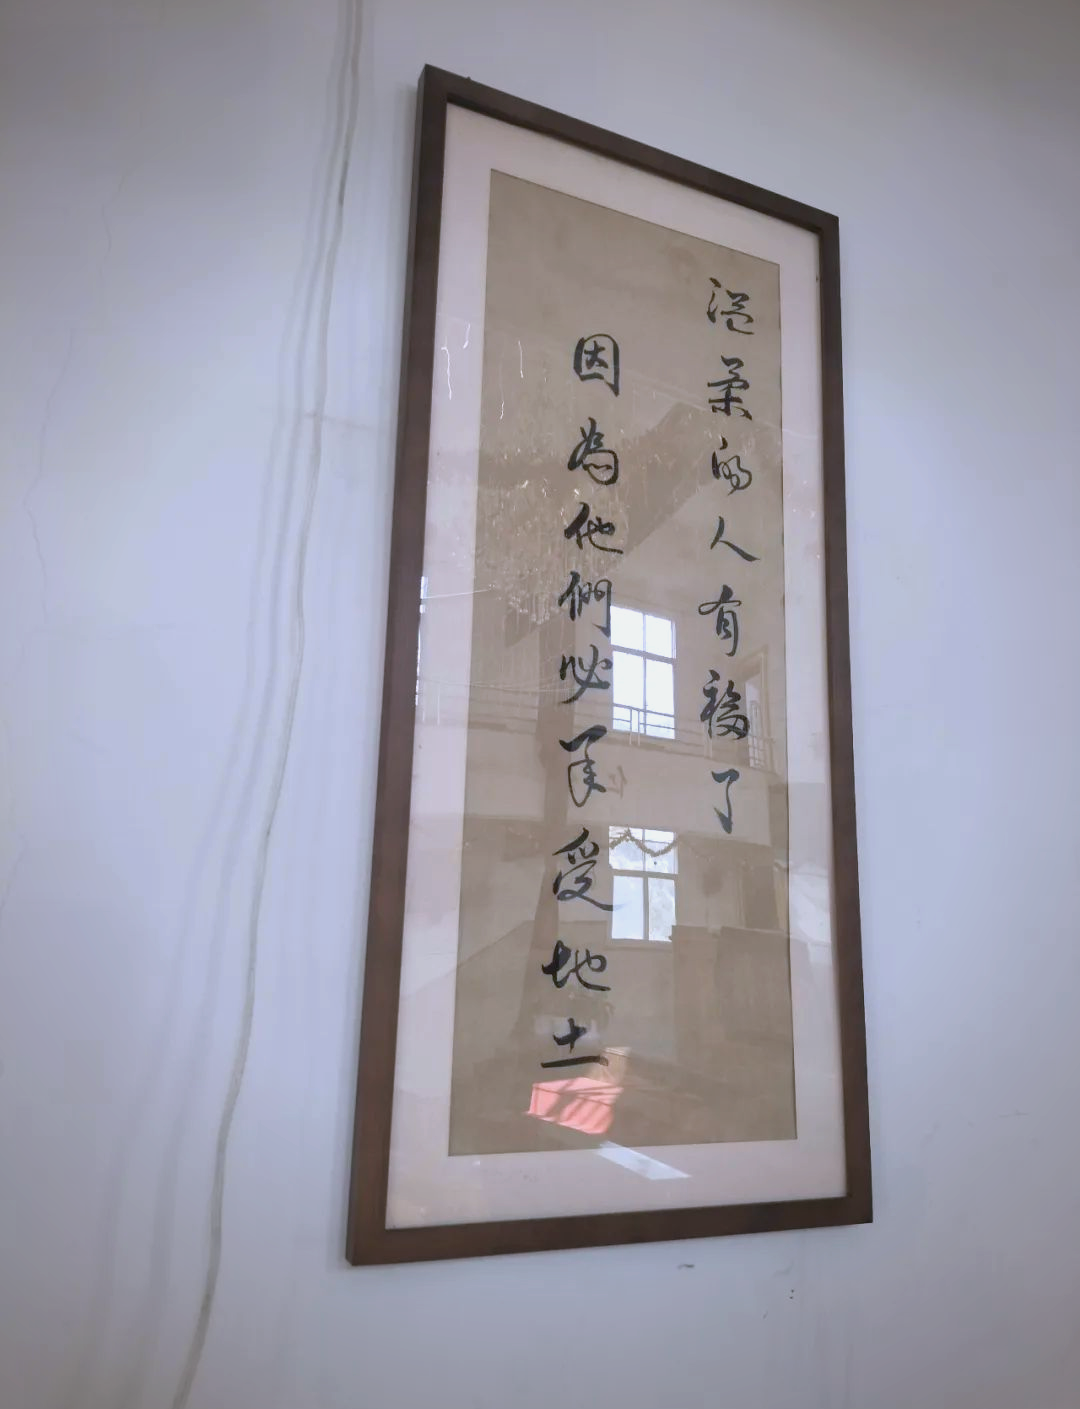 溫柔的人有福了
因為他們必承受地土